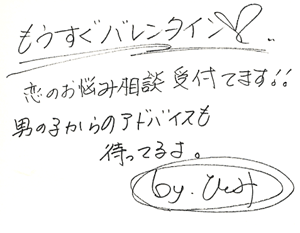 もうすぐバレンタイン♡..
恋のお悩み相談受付てます!!
男の子からのアドバイスも
待ってるよ。
by.ひとみ